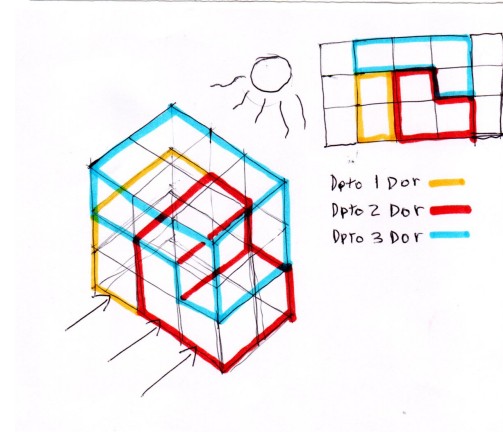 Dpto 1 Dor
Dpto 2 Dor
Dpto 3 Dor